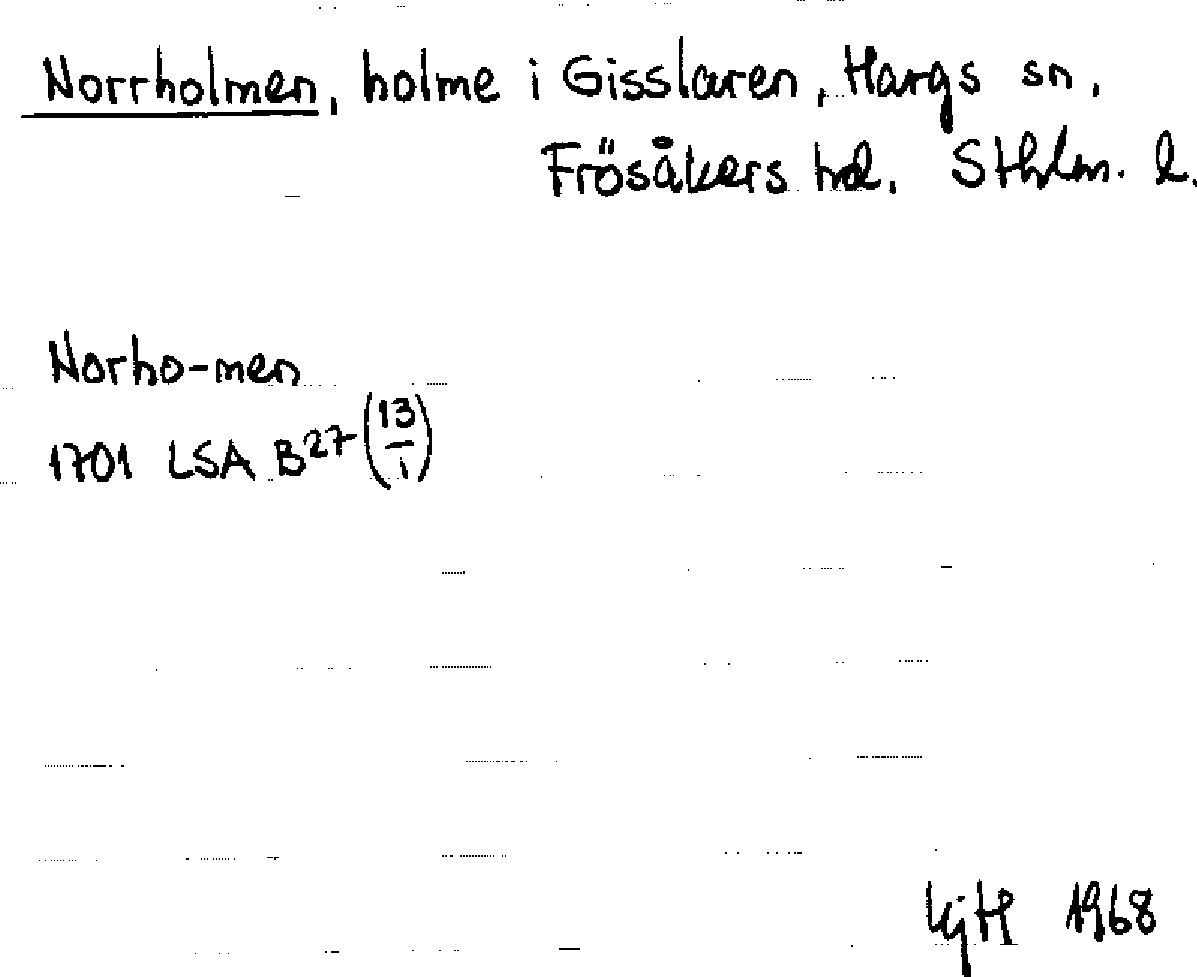 Norrholmen, holme i Gisslaren, Hargs sn.
Frösåkers hd. Sthlm. l.
Norho-men
1701 LSA B27 (13/1)
1968